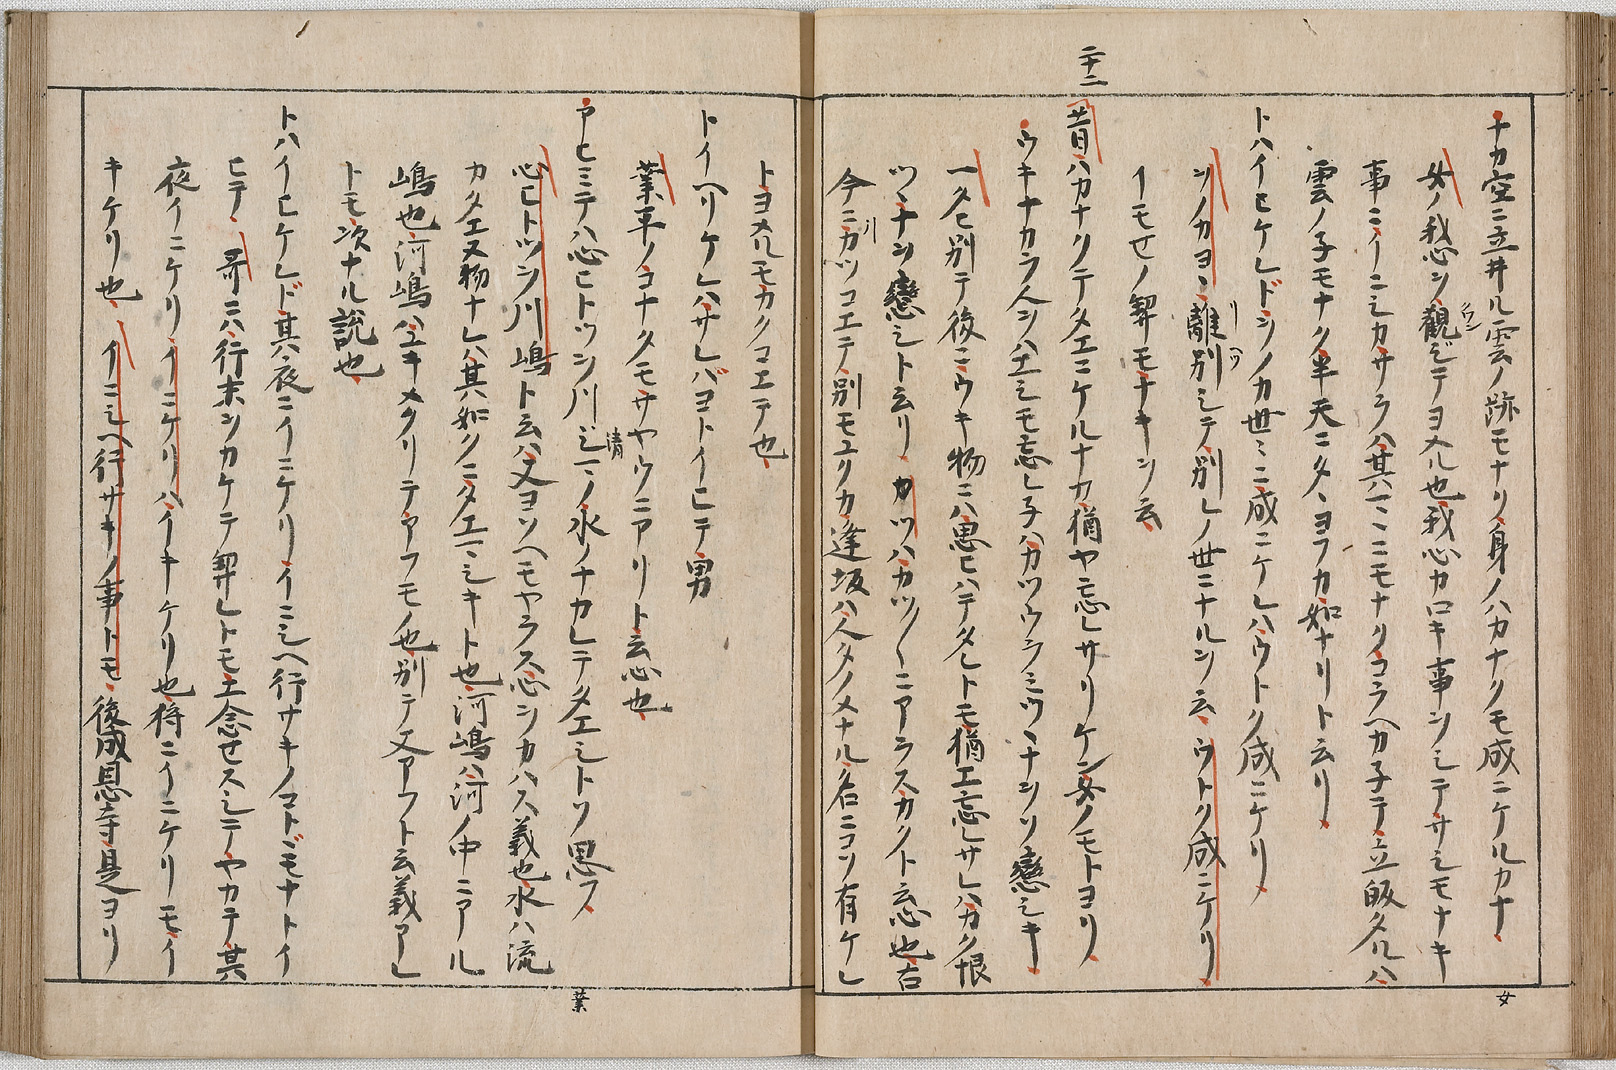 ナカ空ニ立井ル雲ノ跡モナク身ノハカナクモ成ニケルカナ
女ノ我心ヲ観シテヨメル也我心カロキ事ヲシテサシモナキ
事ニイニシカサラハ其マヽニモナクコラヘカ子テ立皈タルハ
雲ノ子モナク半天ニタヽヨフカ如ナリト云リ
トハイヒケレドヲノカ世ヽニ成ニケレハウトク成ニケリ
ヲノカヨヽ離別シテ別レノ世ニナルヲ云ウトク成ニケリ
イモセノ契モナキヲ云
二十二
昔ハカナクテタエニケルナカ猶ヤ忘レサリケン女ノモトヨリ
ウキナカラ人ヲハエシモ忘レ子ハカツウラミツヽナヲソ戀シキ
一タヒ別テ後ニウキ物ニハ思ヒハテタレトモ猶エ忘レサレハカク恨
ツヽナヲ戀シト云リカツハカツ〱ニアラスカクト云心也古
今ニカツコエテ別モユクカ逢坂ハ人タノメナル名ニコソ有ケレ
女
トヨメルモカクコエテ也
トイヘリケレハサレバヨトイヒテ男
業平ノコナタモサヤウニアリト云心也
アヒミテハ心ヒトツヲ川シマノ水ノナカレテタエシトソ思フ
清
心ヒトツヲ川嶋ト云ハ又ヨソヘモヤラス心ヲカハス義也水ハ流
カタエ又物ナレハ其如クニタエマシキト也河嶋ハ河ノ中ニアル
嶋也河嶋ハユキメクリテアフモノ也別テ又アフト云義アレ
トモ次ナル説也
トハイヒケレド其夜ニイニケリイニシヘ行サキノコトドモナトイ
ヒテ哥ニハ行末ヲカケテ契レトモエ念セスシテヤカテ其
夜イニケリイニケリハイキケリ也将ニイニケリモイ
キケリ也イニシヘ行サキノ事トモ後成恩寺是ヨリ
業